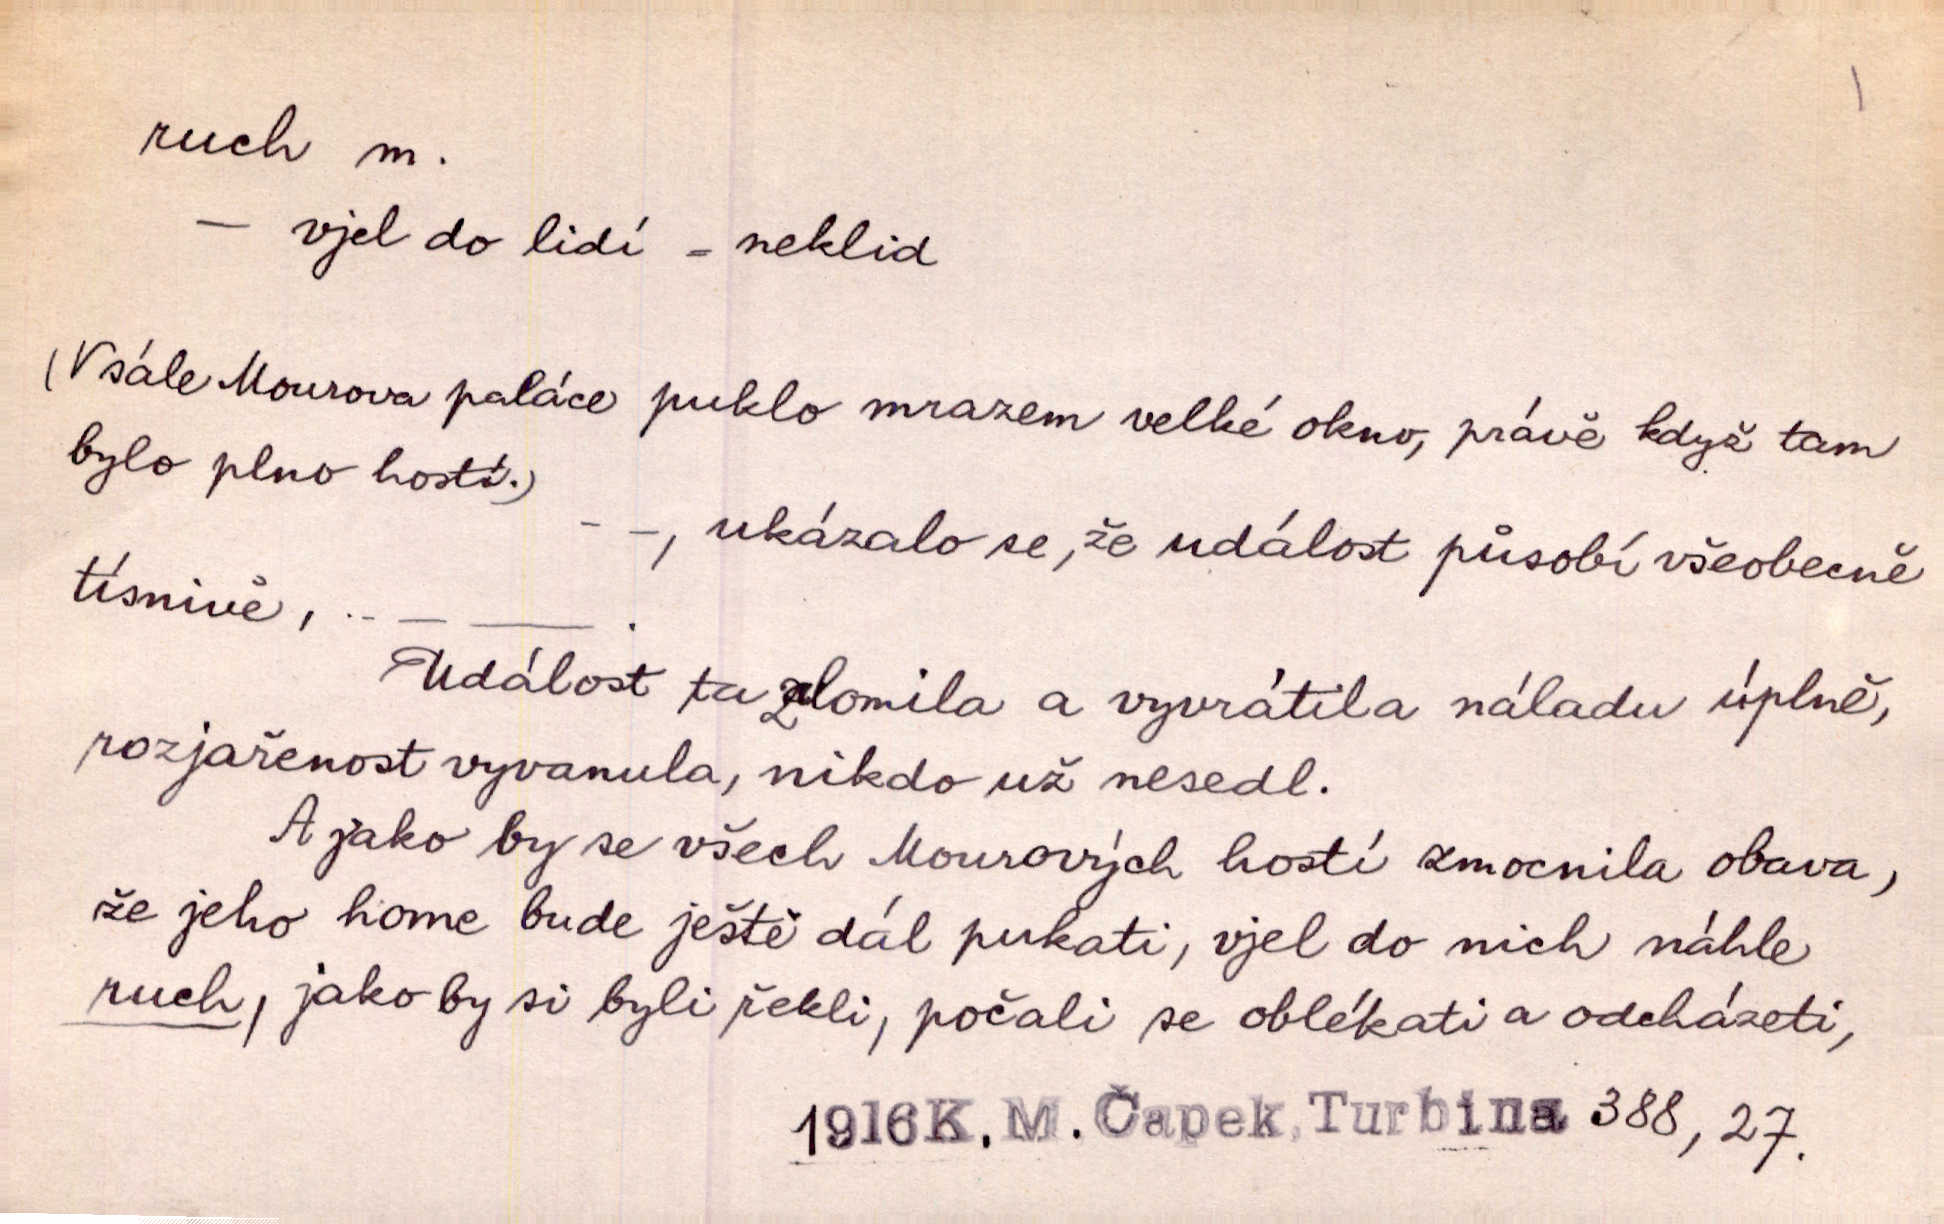 ruch m.
— vjel do lidí = neklid
(V sále Mourova paláce puklo mrazem velké okno, právě když tam
bylo plno hostí.)
- -, ukázalo se, že událost působí všeobecně
tísnivě, .. — —— .
Událost ta zlomila a vyvrátila náladu úplně,
rozjařenost vyvanula, nikdo už nesedl.
A jako by se všech Mourových hostí zmocnila obava,
že jeho home bude ještě dál pukati, vjel do nich náhle
ruch, jako by si byli řekli, počali se oblékati a odcházeti,
1916 K. M. Čapek, Turbina 388, 27.